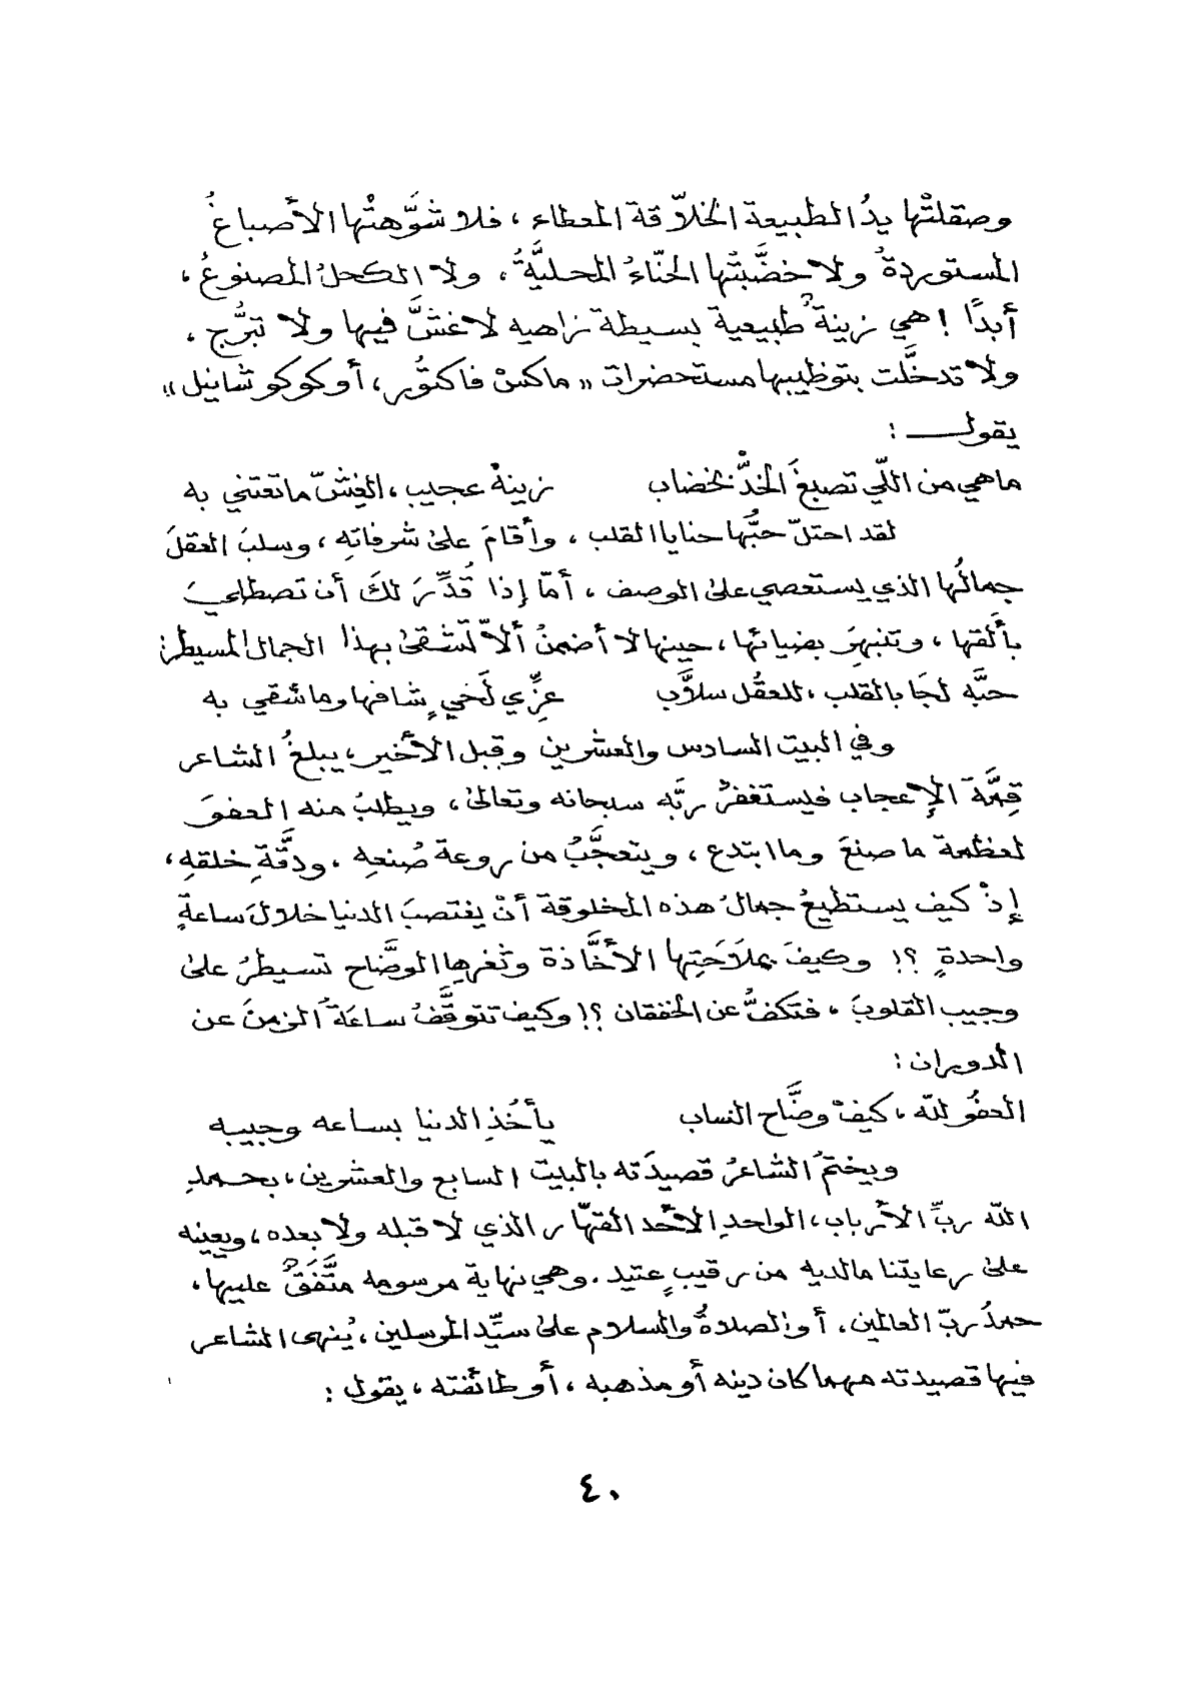 وصقلتْها يدُ الطبيعة الخلاّقة المعطاء ، فلا شوَّهتْها الأصباغُ
المستوردةُ ولا خضَّبتْها الحنّاءُ المحليَّةُ، ولا الكحلُ المصنوعُ،
أبدًا ! هي زينةٌ طبيعية بسيطة زاهيه لاغشَّ فيها ولا تبرُّج ،
ولا تدخَّلت بتوظيبها مستحضرات « ماكسْ فاكتُور ، أو كوكو شانيل »
يقول :
ماهي من اللّي تصبغَ الخدَّ بخضاب زينهْ عجيب ، الغِشّ ماتعتني به
لقد احتلّ حبُّها حنايا القلب ، وأقامَ على شرفاتِهِ ، وسلبَ العقلَ
جمالُها الذي يستعصي على الوصف ، أمّا إذا قُدِّرَ لكَ أن تصطليَ
بألَقها ، وتنبهِرَ بضيائها ، حينها لا أضمنُ ألاّ تَشقى بهذا الجمال المسيطر:
حبَّه لجَا بالقلب ، للعقُل سلاَّب عِزِّي لَخيٍ شافها وما شقي به
وفي البيت السادس والعشرين وقبل الأخير ، يبلغُ الشاعر
قِمَّةَ الإعجاب فيستغفرُ ربَّه سبحانه وتعالى ، ويطلبُ منه العفوَ
لعظمة ما صنعَ وما ابتدع ، ويتعجَّبُ من روعة صُنعِهِ ، ودقَّةِ خلقهِ ،
إذْ كيف يستطيعُ جمالُ هذه المخلوقة أنْ يغتصبَ الدنيا خلالَ ساعةٍ
واحدةٍ ؟! وكيفَ بملاَحَتِها الأخَّاذة وثغرِها الوضَّاح تسيطرُ على
وجيب القلوبَ ، فتكفُّ عن الخفقان ؟! وكيف تتوقَّفُ ساعَةُ الزمنَ عن
الدوران :
العفُو لله ، كيفْ وضَّاح النساب يأخُذِ الدنيا بساعه وجيبه
ويختمُ الشاعرُ قصيدَته بالبيت السابع والعشرين ، بحمدِ
الله ربِّ الأرباب ، الواحدِ الأحد القهّار الذي لا قبله ولا بعده ، ويعينه
على رعايتنا مالديه من رقيبٍ عتيد . وهي نهاية مرسومه متَّفَقٌ عليها ،
حمدُ ربّ العالمين ، أو الصلاةُ والسلام على سيِّد المرسلين ، يُنهي الشاعر
فيها قصيدته مهما كان دينه أو مذهبه ، أو طائفته ، يقول :
٤٠